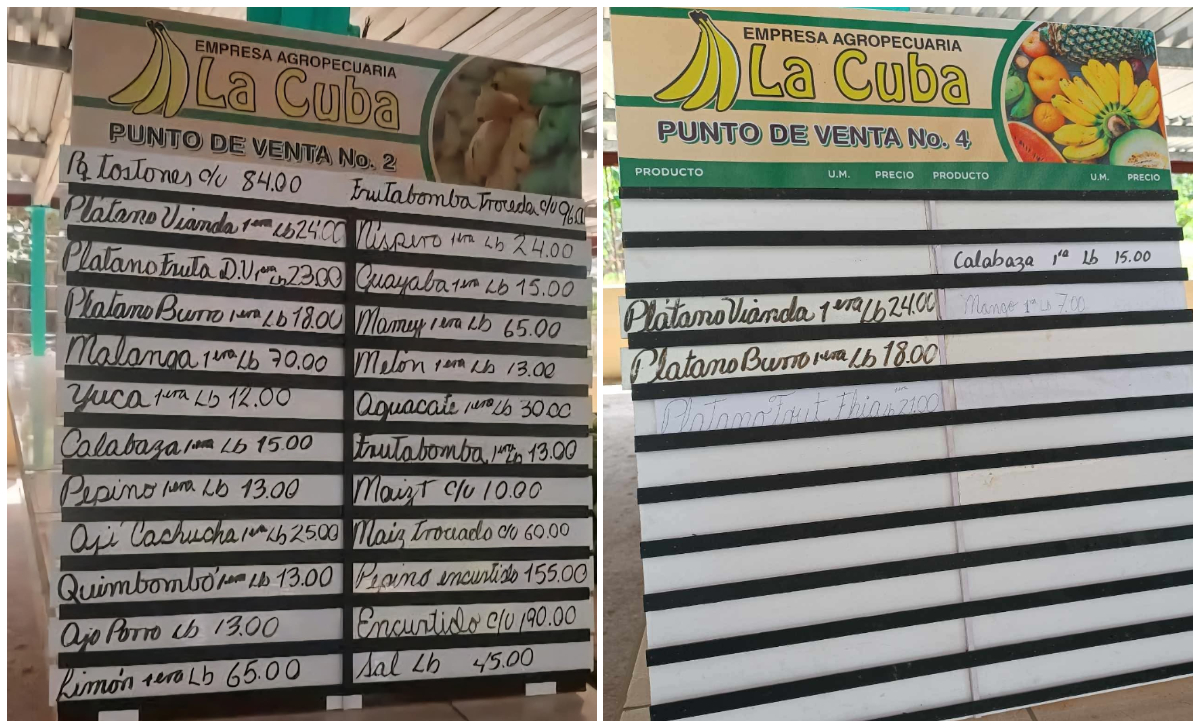 EMPRESA AGROPECUARIA
La Cuba
PUNTO DE VENTA No. 2
Pq tostones c/u 84.00
Frutabomba Troceda c/u 96.0
Plátano Vianda 1era Lb 24.00
Níspero 1era Lb 24.00
Platano Fruta D.V 1era Lb 23.00
Guayaba 1era Lb 15.00
Platano Burro 1era Lb 18.00
Mamey 1era Lb 65.00
Malanga 1era Lb 70.00
Melón 1era Lb 13.00
Yuca 1era Lb 12.00
Aguacate 1era Lb 30.00
Calabaza 1era Lb 15.00
Frutabomba 1era Lb 13.00
Pepino 1era Lb 13.00
Maiz T c/u 10.00
Ají Cachucha 1era Lb 25.00
Maiz troceado c/u 60.00
Quimbombó 1era Lb 13.00
Pepino encurtido 155.00
Ajo Porro Lb 13.00
Encurtido c/u 190.00
Limón 1era Lb 65.00
Sal Lb 45.00
EMPRESA AGROPECUARIA
La Cuba
PUNTO DE VENTA No. 4
PRODUCTO U.M. PRECIO PRODUCTO U.M. PRECIO
Calabaza 1ra Lb 15.00
Plátano Vianda 1era Lb 24.00
Mango 1ra Lb 7.00
Platano Burro 1era Lb 18.00
Platano Frut. Lb 21.00